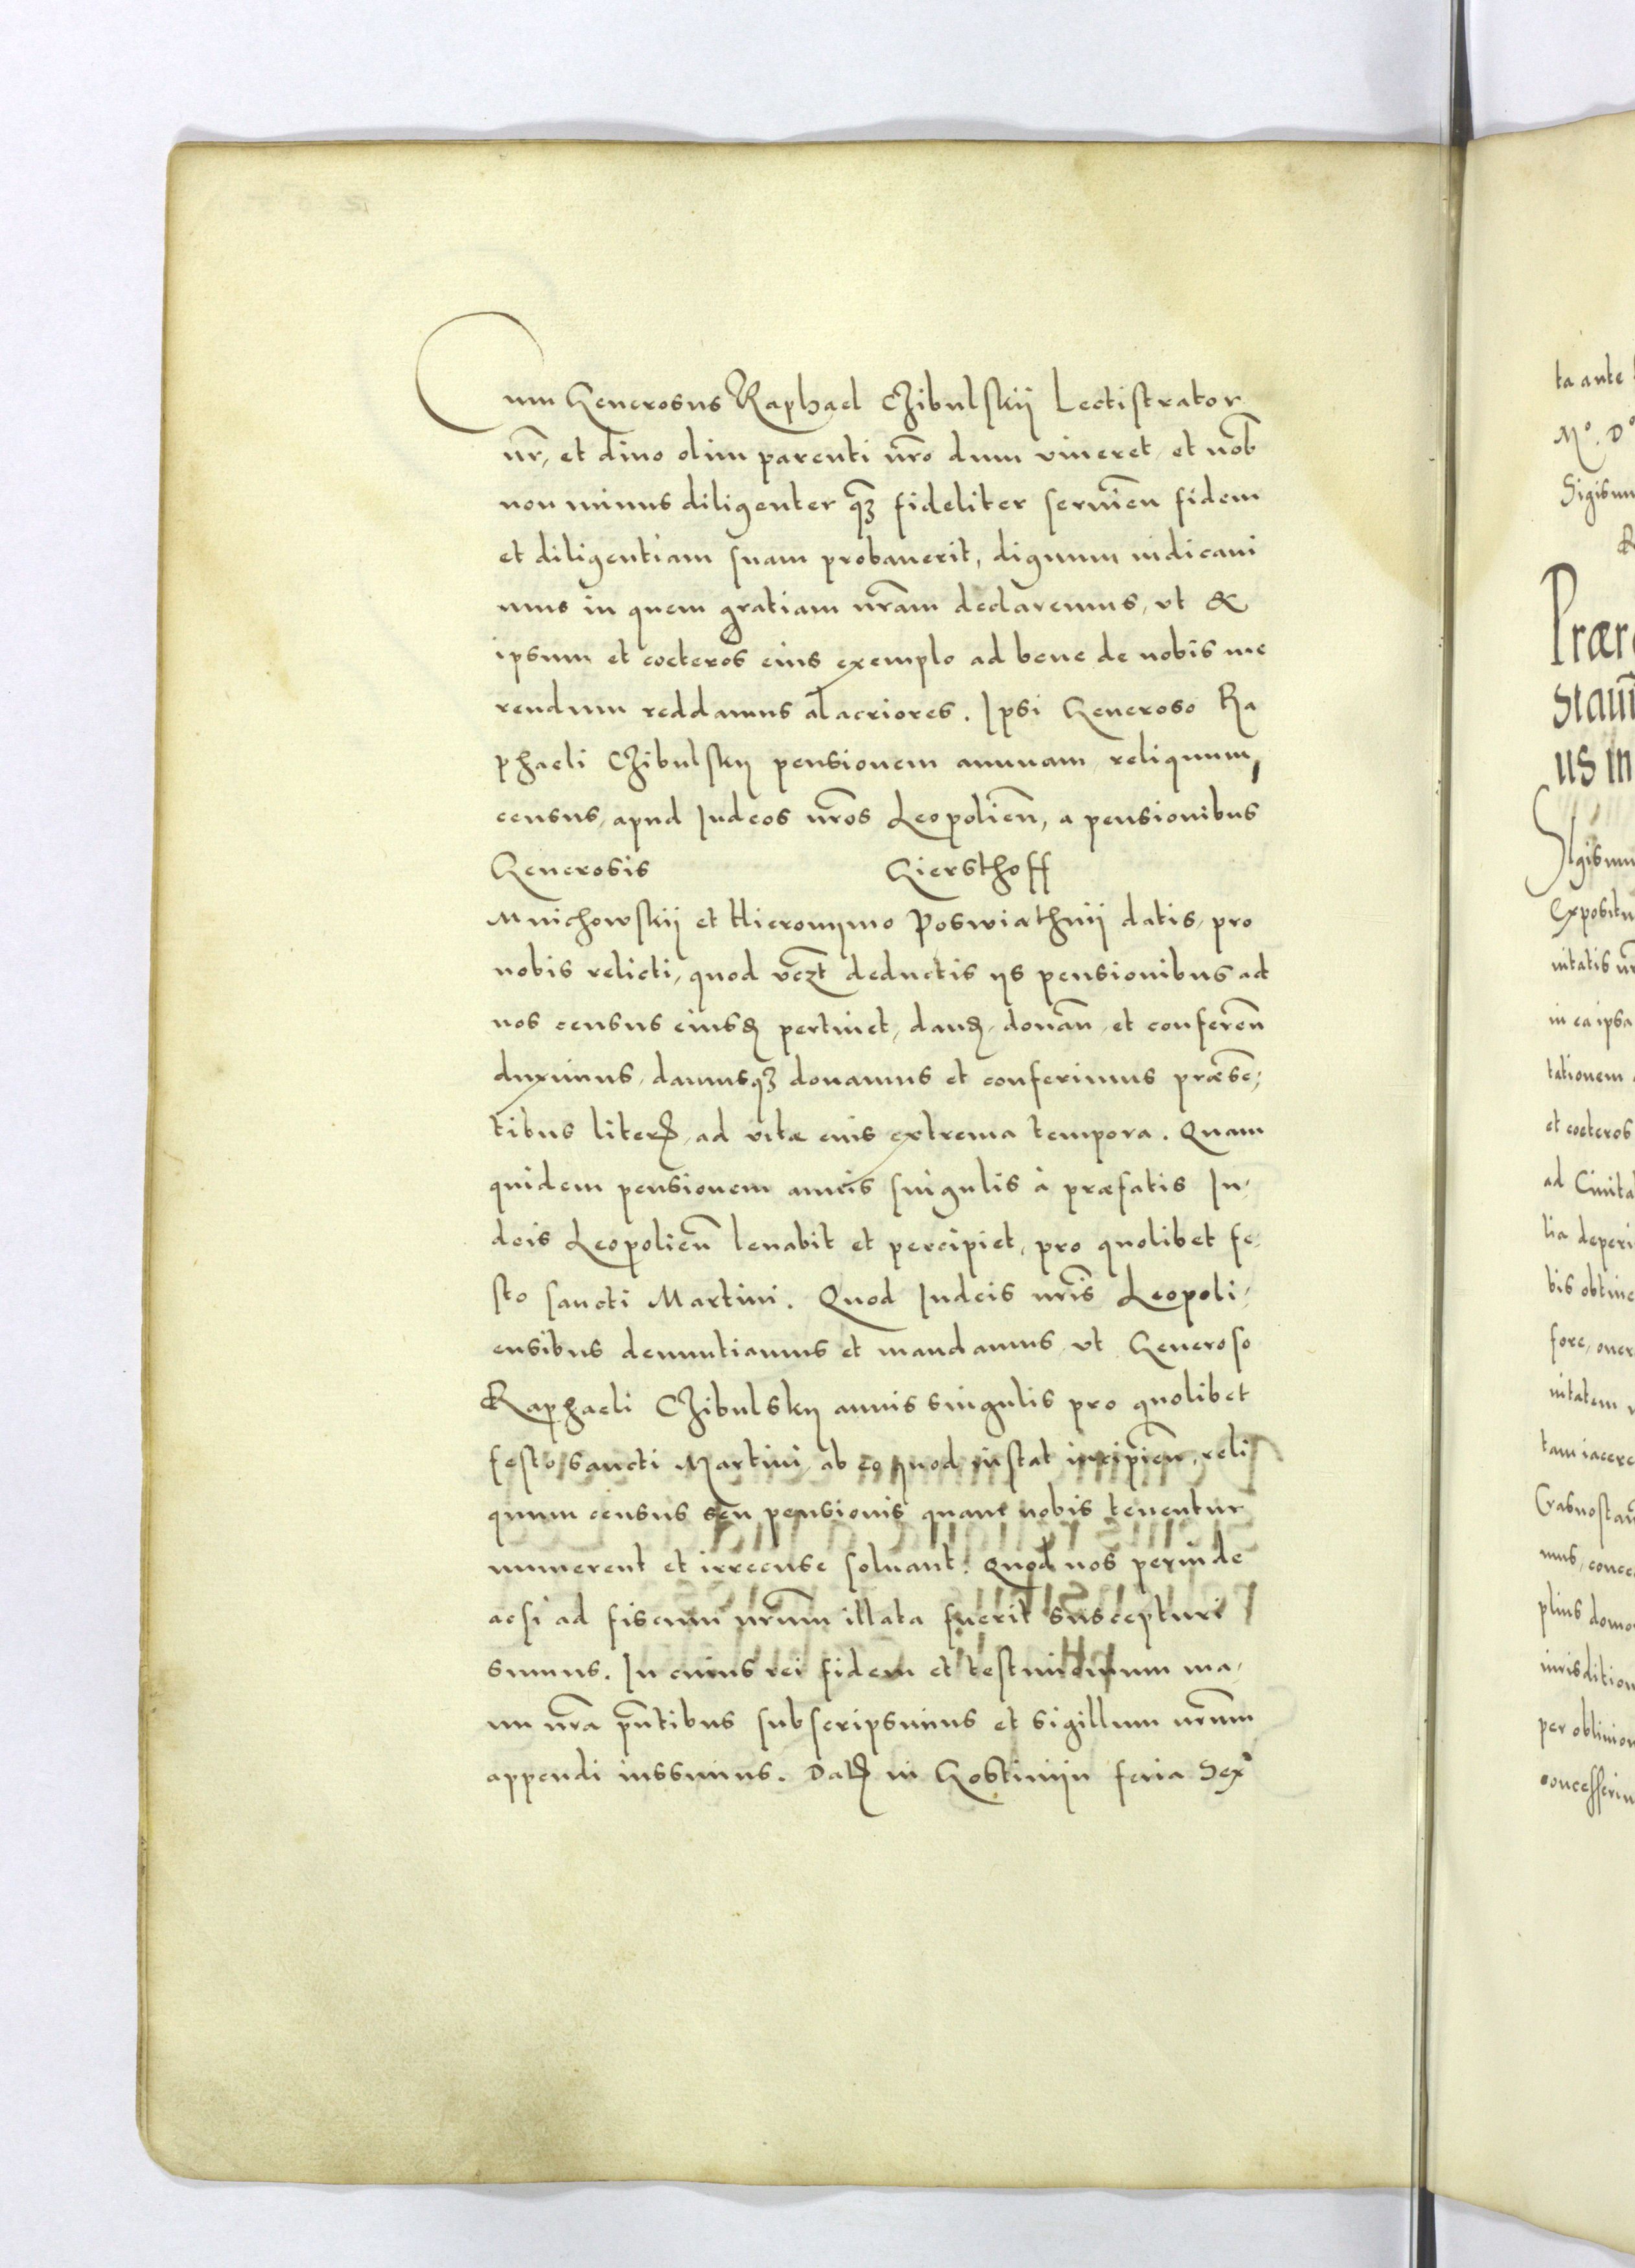 Cum Generosus Raphael Chibulskij Lectistrator
nr̃, et diuo olim parenti nr̃o dum viueret, et nob̃
non minus diligenter q̃ꝫ fideliter seruieñ fidem
et diligentiam suam probauerit, dignum iudicaui
mus in quem gratiam nr̃am declaremus, vt &
ipsum et coeteros eius exemplo ad bene de nobis me
rendum reddamus alacriores. Ipsi Generoso Ra
phaeli Chibulskij pensionem annuam, reliquum,
census, apud Iudeos nr̃os Leopolieñ, a pensionibus
Generosis Giersthoff
Mnichowskij et Hieronymo Poswiathnij datis, pro
nobis relicti, quod vcꝫt̃ deductis ijs pensionibus ad
nos census eiusđ pertinet, danđ, donañ, et confereñ
duximus, damusqꝫ donamus et conferimus præsen-
tibus literꝭ, ad vitæ eius extrema tempora. Quam
quidem pensionem annis singulis à præfatis Iu-
deis Leopolieñ leuabit et percipiet, pro quolibet fe-
sto sancti Martini. Quod Iudeis nr̃is Leopoli-
ensibus denuntiamus et mandamus, vt Generoso
Raphaeli Chibulskij annis singulis pro quolibet
festo sancti Martini, ab eo quod instat incipieñ, reli
quum census seu pensionis quam nobis tenentur
numerent et irrecuse soluant. Quod nos perinde
acsi ad fiscum nr̃um illata fuerit suscepturi
sumus. In cuius rei fidem et testimonium ma-
nu nr̃a pñtibus subscripsimus et sigillum nr̃um
appendi iussimus. Datꝭ in Gostinijn feria Sex
ta ante
Mº. Dº
Sigismu
Præ
Staui
us in
Sigismu
Expositu
uitatis nr̃
in ea ipsa
tationem
et coeteros
ad Ciuita
lia deperi
bis obtine
fore, oner
uitatem
tam iacere
Crasnostau
mus, conce
plius domo
iurisdition
per obliuion
concesserim